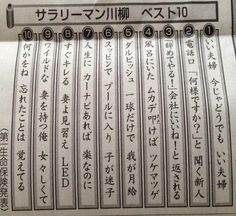 サラリーマン川柳 ベスト10
❶いい夫婦 今じゃどうでも いい夫婦
❷電話口 「何様ですか?」と 聞く新人
❸「辞めてやる!」会社にいいね!と 返される
❹風呂にいた ムカデ叩けば ツケマツゲ
❺ダルビッシュ 一球だけで 我が月給
❻スッピンで プールに入り 子が迷子
❼人生に カーナビあれば 楽なのに
❽すぐキレる 妻よ見習え LED
❾ワイルドな 妻を持つ俺 女々しくて
❿何かをね 忘れたことは 覚えてる
(第一生命保険発表)